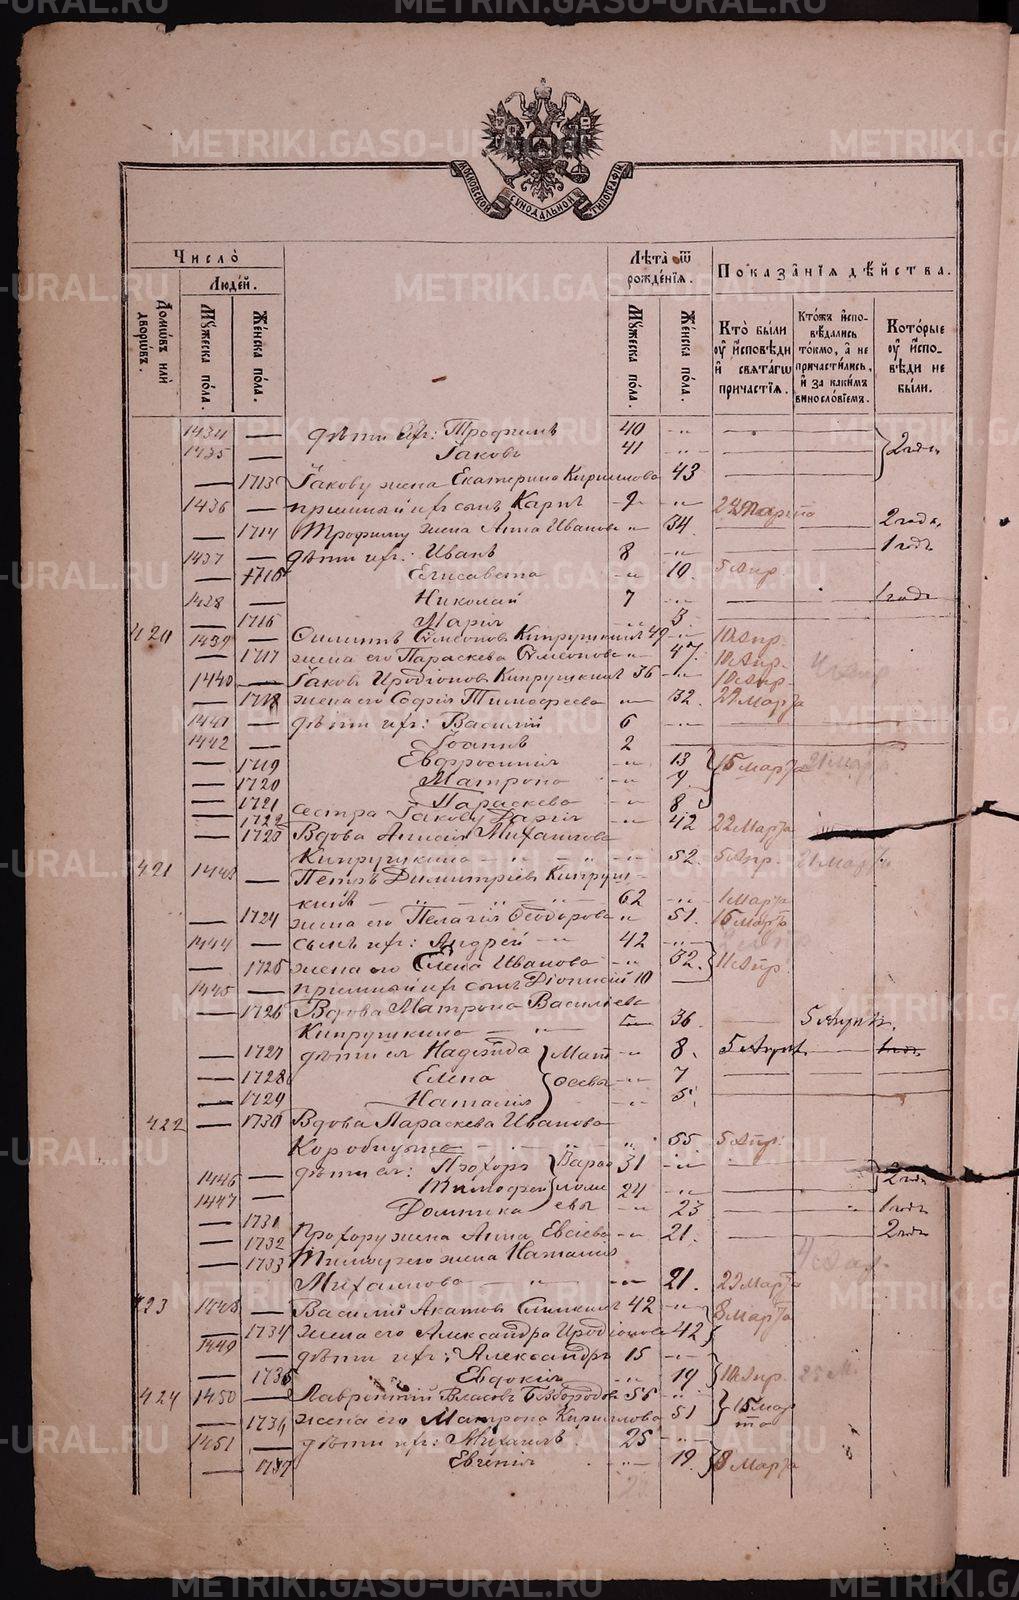 МОСКОВСКОЙ СѴНОДАЛЬНОЙ ТИПОГРАФІИ
Число̀
Люде́й.
Домѡ́въ илѝ дворѡ́въ.
Мꙋ́жеска по́ла.
Же́нска по́ла.
Лѣта̀ ѿ рожде́нїѧ.
Мꙋ́жеска по́ла.
Же́нска по́ла.
Показа̑нїѧ дѣ́йства.
Кто̀ бы́ли ᲂу҆ и҆спо́вѣди и҆ свѧта́гѡ прича́стїѧ.
Кто́жъ и҆спо-вѣ́дались то́кмо, а҆ не причасти́лись, и҆ за каки́мъ винослові́емъ.
Кото́рые ᲂу҆ и҆спо-вѣди не бы́ли.
1434 — дѣти ихъ: Трофимъ 40 -"- — —
1435 — Іаковъ 41 -"- — — 2 года
— 1713 Іакову жена Екатерина Кириллова 43 — —
1436 — пріимный ихъ сынъ Карпъ 9 -"- 22 Марта
— 1714 Трофиму жена Анна Иванова -"- 34 — — 2 года
1437 — дѣти ихъ: Иванъ 8 -"- — — 1 годъ
— 1715 Елисавета -"- 10 5 Апр.
1438 — Николай 7 — — 1 годъ
— 1716 Марія -"- 3. — —
420 1439 — Симеоновъ Кипрушкинъ 49 -"- 10 Апр.
— 1717 жена его Параскева Симеонова -"- 47. 10 Апр.
1440 — Іаковъ Иродіоновъ Кипрушкинъ 36 -"- 10 Апр.
— 1718 жена его Софія Тимофеева -"- 32. 29 Марта
1441 — дѣти ихъ: Василій 6 -"- — —
1442 — Іоаннъ 2 — —
— 1719 Евфросинія -"- 13 15 Марта
— 1720 Матрона -"- 9
— 1721 Параскева -"- 8
— 1722 сестра Іакову Дарія -"- 42 22 Марта
— 1723 Вдова Михаилова
Кипрушкина -"- 52. 5 Апр. 21 Марта
421 1443 — Петръ Димитріевъ Кипруш
кинъ 62 -"- 1 Марта
— 1724 жена его Пелагія Ѳеодорова -"- 51. 15 Марта
1444 — сынъ ихъ: Андрей 42 -"-
— 1725 жена его Елена Иванова -"- 32. 11 Апр.
1445 — пріимный ихъ сынъ Діонисій 10 —
— 1726 Вдова Матрона Василіева
Кипрушкина — 36. — 5 Апрѣл.
— 1727 дѣти ея Надежда Мат -"- 8. 5 Апрѣл. — 1 годъ
— 1728 Елена ѳеевы -"- 7 — —
— 1729 Наталія -"- 5. — —
422 — 1730 Вдова Параскева Иванова
Коробицына — 55 5 Апр.
1446 — дѣти ея: Прохоръ Варѳо 31 -"- — —
1447 — Тимофей ломе 24 -"- — — 2 года
— 1731 Домника евы -"- 23 — 1 годъ
— 1732 Прохору жена Анна Евсіева -"- 21. — — 2 года
— 1733 Тимофею жена Наталія
Михаилова — -"- 21. 29 Марта
423 1448 — Василій Акатовъ 42 -"- 8 Марта
— 1734 жена его Александра Иродіонова 42
1449 — дѣти ихъ: Александръ 15 -"-
— 1735 Евдокія -"- 19 10 Апр.
424 1450 — Лаврентій Власовъ Безбородовъ 55 -"- 15 Мар
— 1736 жена его Матрона Кириллова 51 та
1451 — дѣти ихъ: Михаилъ 25 -"-
— 1737 Евгенія -"- 19. 8 Марта
METRIKI.GASO-URAL.RU